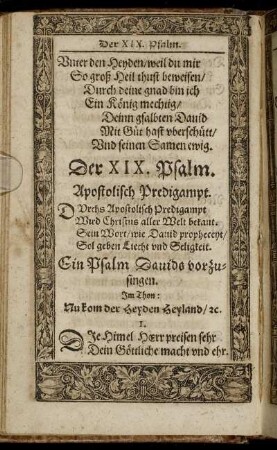 Der XIX. Psalm.
Vnter den Heyden/ weil du mir
So groß Heil thust beweisen/
Durch deine gnad bin ich
Ein König mechtig/
Deinn gsalbten Dauid
Mit Güt hast vberschütt/
Vnd seinen Samen ewig.
Der XIX. Psalm.
Apostolisch Predigampt.
DVrchs Apostolisch Predigampt
Wird Christus aller Welt bekant.
Sein Wort/ wie Dauid propheceyt/
Sol geben Liecht vnd Seligkeit.
Ein Psalm Dauids vorzu-
singen.
Im Thon:
Nu kom der Heyden Heyland/ ꝛc.
1.
DJe Himel Herr preisen sehr
Dein Göttliche macht vnd ehr.